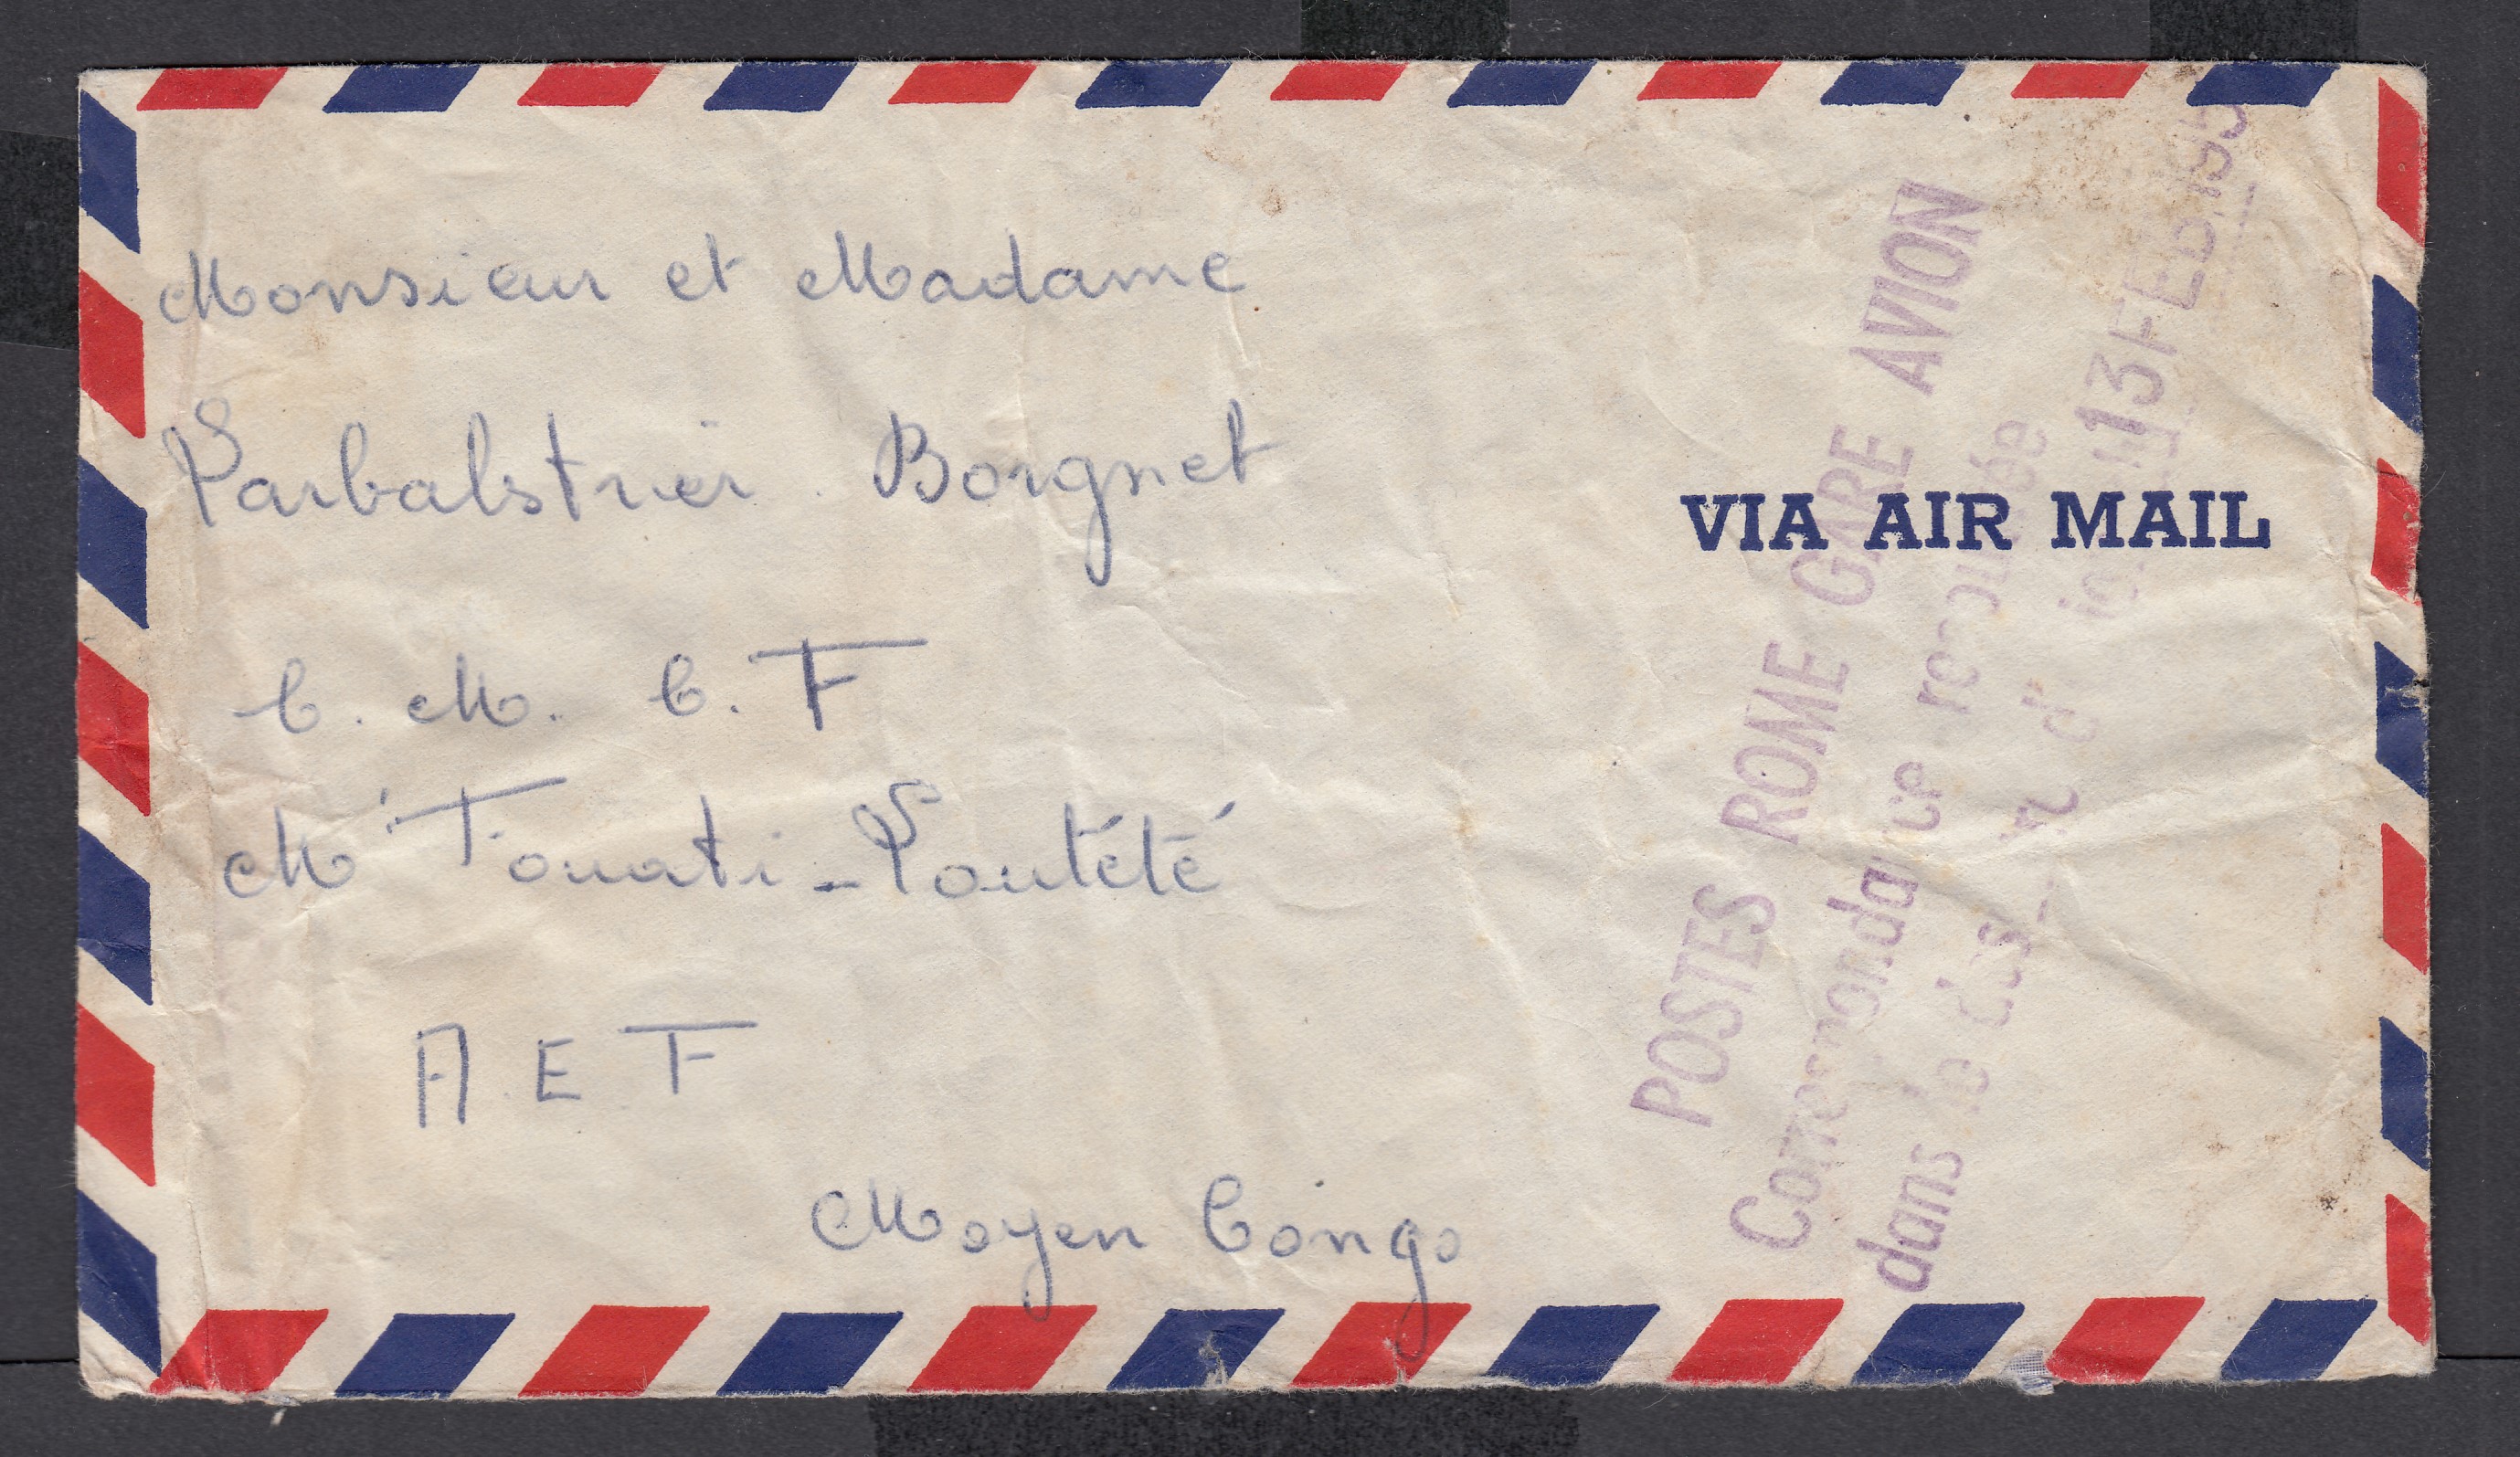 Monsieur et Madame
Parbalstrier. Borgnet
C. M. C. F
M'Fouati - Loutété
A E F
Moyen Congo
VIA AIR MAIL
POSTES ROME GARE AVION
Correspondance recouvrée
dans le désastre d'
13 FEB. 1955